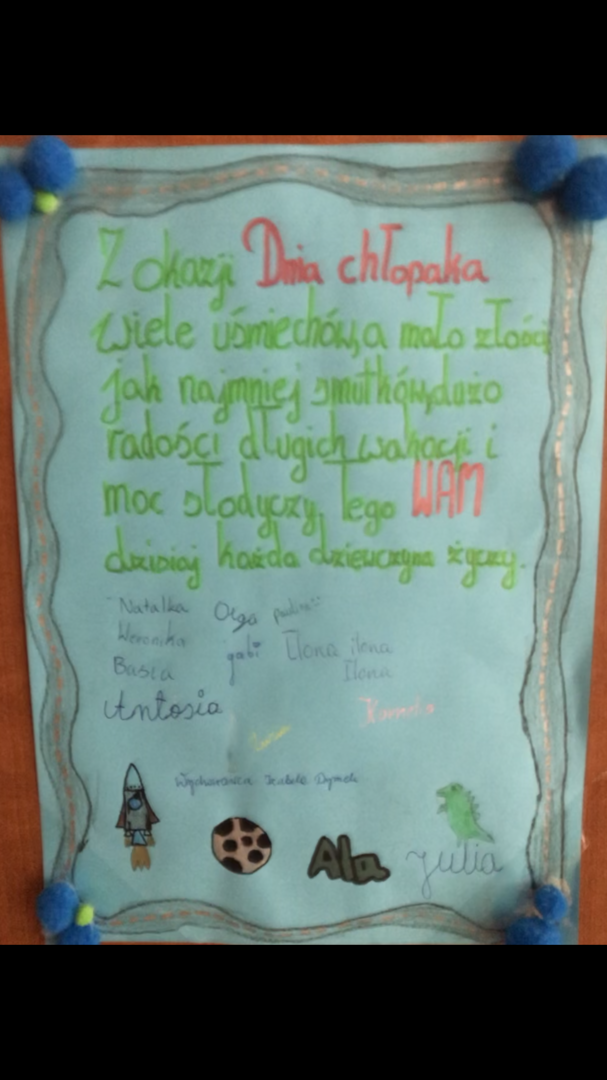 Z okazji Dnia chłopaka
wiele uśmiechów, a mało złości,
jak najmniej smutków, dużo
radości długich wakacji i
moc słodyczy. Tego WAM
dzisiaj każda dziewczyna życzy.
Natalka Olga Paulina
Weronika gabi Ilona ilona
Basia Ilona
Antosia Kornela
Wychowawca Izabela
Ala Julia